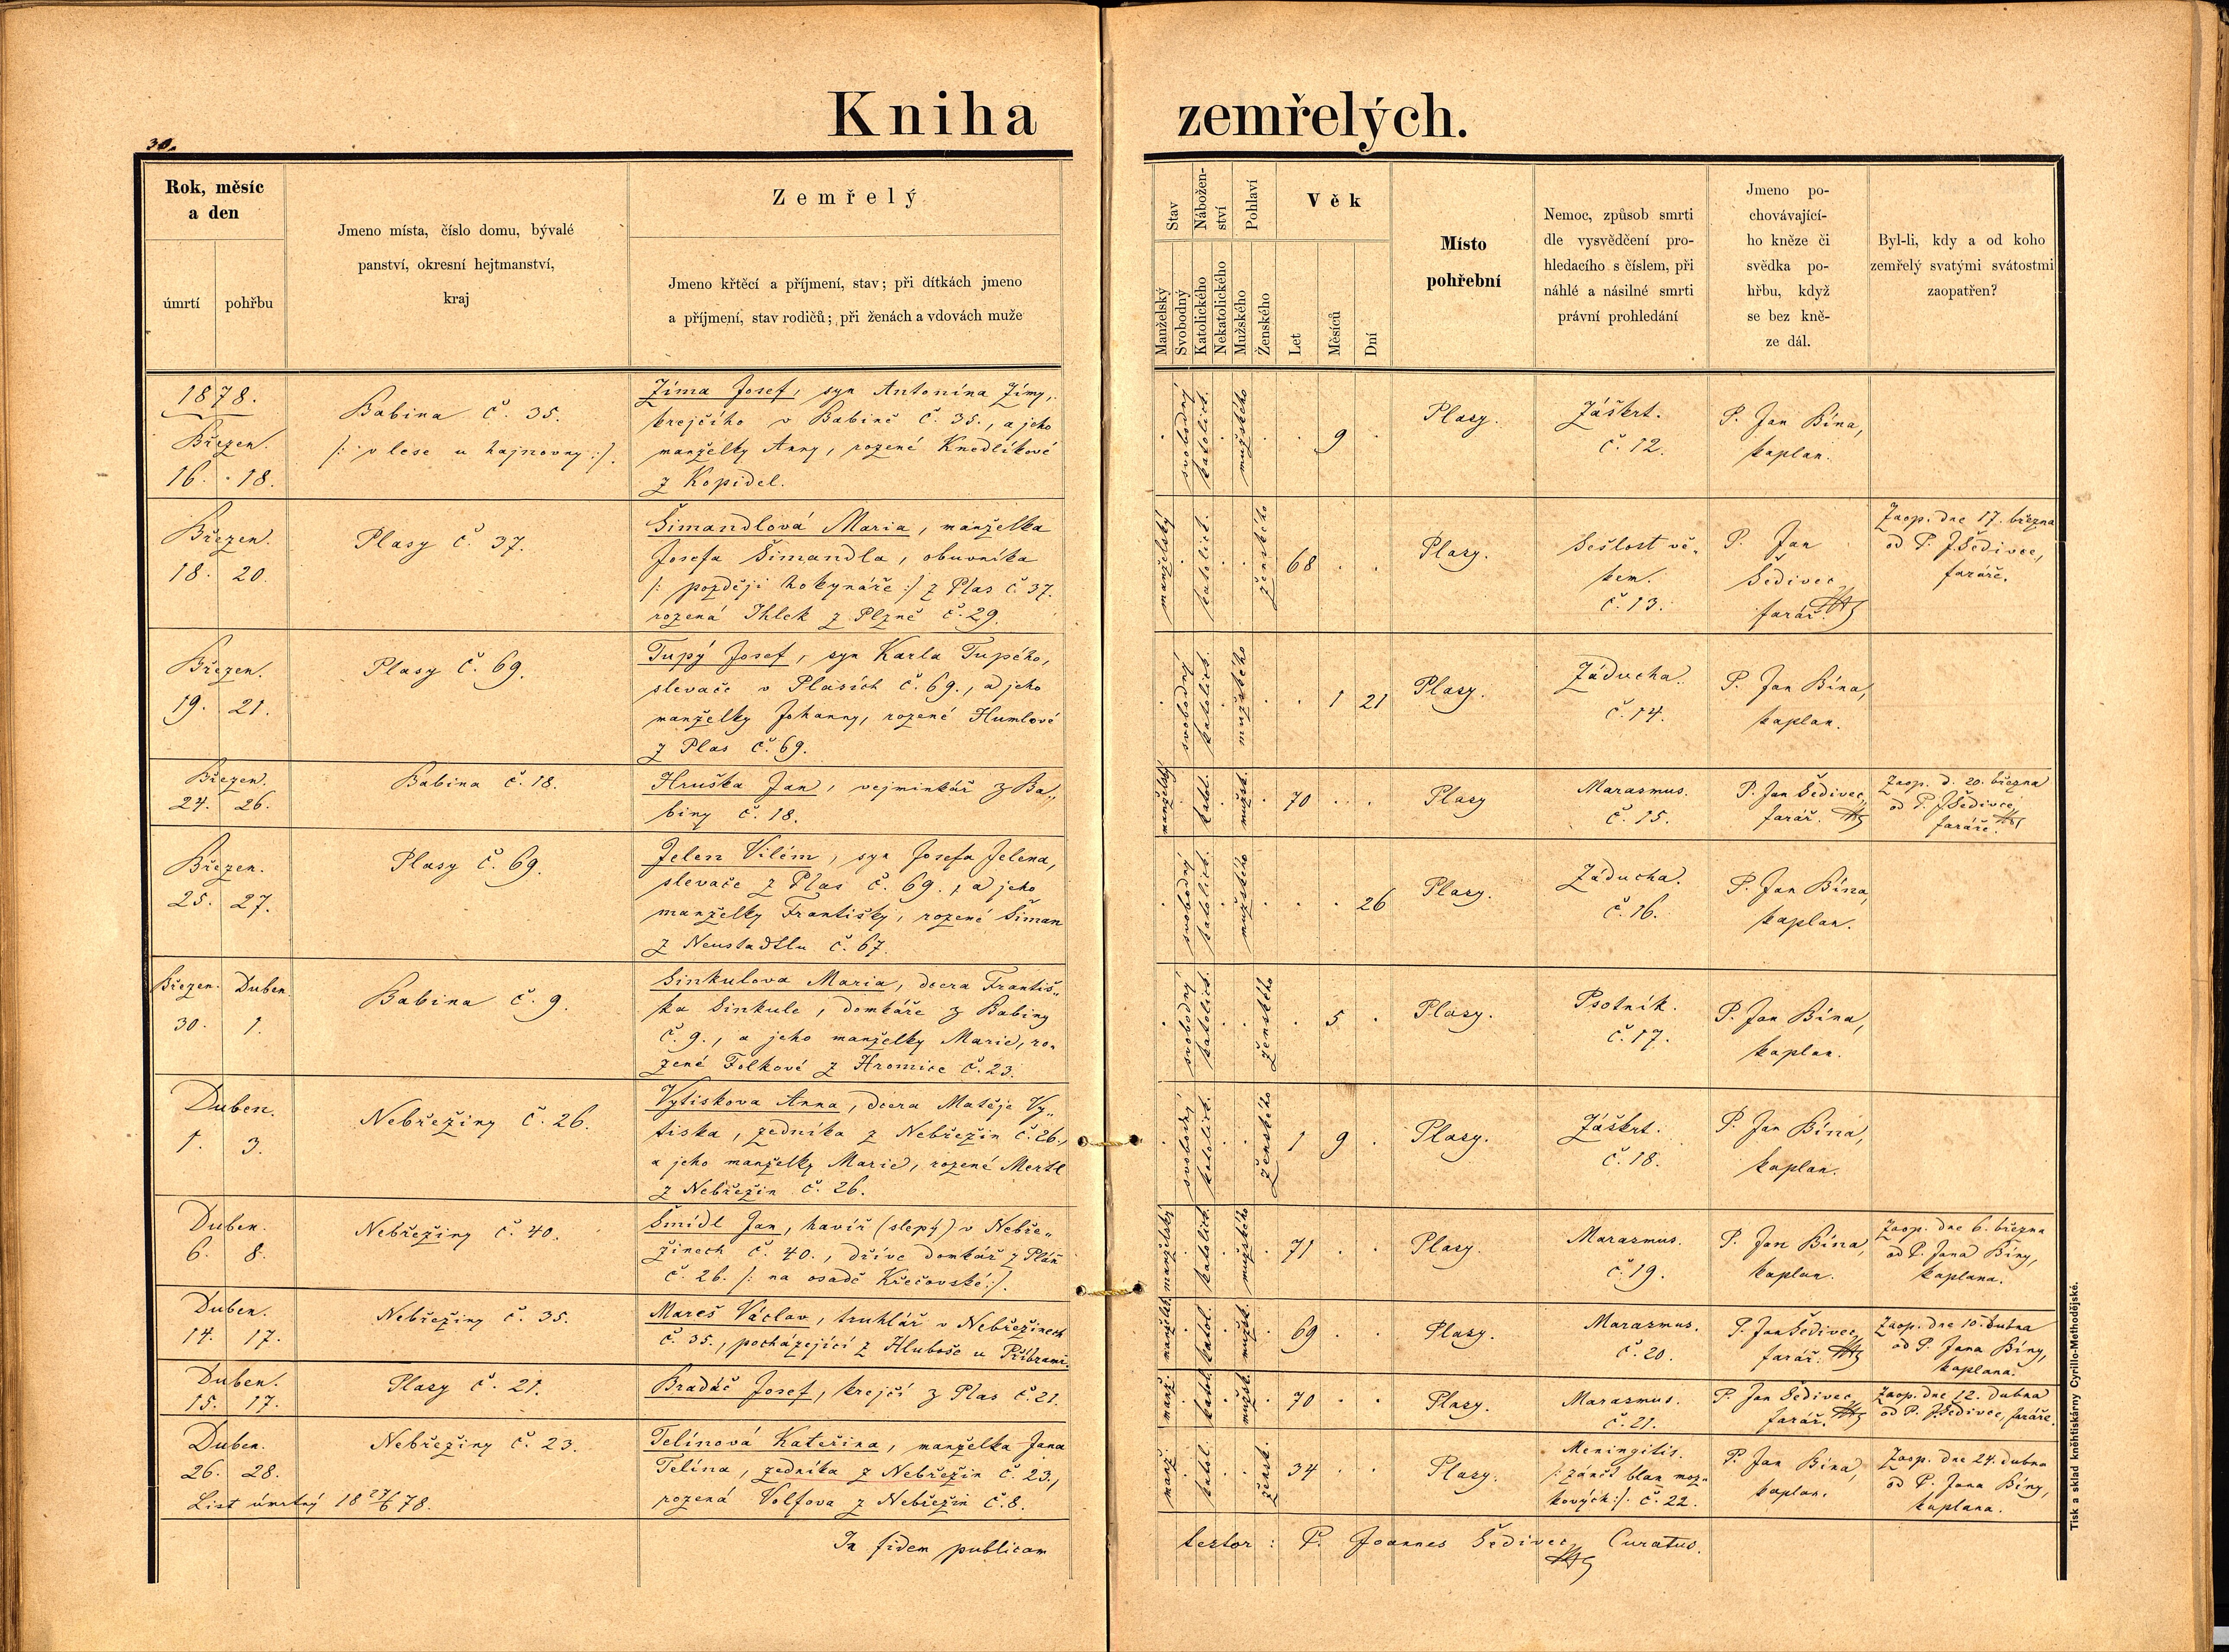 Kniha zemřelých.
30.
Rok, měsíc
a den
úmrtí
pohřbu
Jmeno místa, číslo domu, bývalé
panství, okresní hejtmanství,
kraj
Zemřelý
Jmeno křtěcí a příjmení, stav; při dítkách jmeno
a příjmení, stav rodičů; při ženách a vdovách muže
Stav
Manželský
Svobodný
Nábožen-
ství
Katolického
Nekatolického
Pohlaví
Mužského
Ženského
Věk
Let
Měsíců
Dní
Místo
pohřební
Nemoc, způsob smrti
dle vysvědčení pro-
hledacího s číslem, při
náhlé a násilné smrti
právní prohledání
Jmeno po-
chovávající-
ho kněze či
svědka po-
hřbu, když
se bez kně-
ze dál.
Byl-li, kdy a od koho
zemřelý svatými svátostmi
zaopatřen?
1878.
Březen.
16. 18.
Babina č. 35.
/: v lese u hajnovny :/.
Zíma Josef, syn Antonína Zímy,
krejčího v Babině č. 35., a jeho
manželky Anny, rozené Knedlíkové
z Kopidel.
svobodný
katolict.
mužského
9
Plasy.
Záškrt.
č. 12.
P. Jan Bína,
kaplan.
Březen.
18. 20.
Plasy č. 37.
Šimandlová Maria, manželka
Josefa Šimandla, obuvníka
/: později hokynáře :/ z Plas č. 37.
rozená Ihlek z Plzně č. 29.
manželský
katolict.
ženského
68
Plasy.
Sešlost vě-
kem.
č. 13.
P. Jan
Šedivec
farář.
Zaop. dne 17. března
od P. J. Šedivce,
faráře.
Březen.
19. 21.
Plasy č. 69.
Tupý Josef, syn Karla Tupého,
slevače v Plasích č. 69., a jeho
manželky Johanny, rozené Humlové
z Plas č. 69.
svobodný
katolict.
mužského
1 21
Plasy.
Záducha.
č. 14.
P. Jan Bína,
kaplan.
Březen.
24. 26.
Babina č. 18.
Hruška Jan, vejminkář z Ba„
biny č. 18.
manželský
katol.
mužsk.
70
Plasy
Marazmus.
č. 15.
P. Jan Šedivec,
farář.
Zaop. d. 20. března
od P. J. Šedivce,
faráře.
Březen.
25. 27.
Plasy č. 69.
Jelen Vilém, syn Josefa Jelena,
slevače z Plas č. 69., a jeho
manželky Františky, rozené Šiman
z Neustadtlu č. 67.
svobodný
katolict.
mužského
26
Plasy.
Záducha.
č. 16.
P. Jan Bína,
kaplan.
Březen. Duben
30. 1.
Babina č. 9.
Sinkulova Maria, dcera Františ„
ka Sinkule, domkáře z Babiny
č. 9., a jeho manželky Marie, ro„
zené Folkové z Hromice č. 23.
svobodný
katolict.
ženského
5
Plasy.
Psotník.
č. 17.
P. Jan Bína,
kaplan.
Duben.
1. 3.
Nebřeziny č. 26.
Vytiskova Anna, dcera Matěje Vy„
tiska, zedníka z Nebřezin č. 26.,
a jeho manželky Marie, rozené Mertl
z Nebřezin č. 26.
svobodný
katolict.
ženského
1 9
Plasy.
Záškrt.
č. 18.
P. Jan Bína,
kaplan.
Duben.
6. 8.
Nebřeziny č. 40.
Šmídl Jan, havíř (slepý) v Nebře„
zinech č. 40., dříve domkář z Pláň
č. 26. /: na osadě Křečovské :/.
manželský
katolict.
mužského
71
Plasy.
Marazmus.
č. 19.
P. Jan Bína,
kaplan.
Zaop. dne 6. března
od P. Jana Bíny,
kaplana.
Duben.
14. 17.
Nebřeziny č. 35.
Mareš Václav, truhlář v Nebřezinech
č. 35., pocházející z Hluboše u Příbrami.
manžels.
katol.
mužsk.
69
Plasy.
Marazmus.
č. 20.
P. Jan Šedivec,
farář.
Zaop. dne 10. dubna
od P. Jana Bíny,
kaplana.
Duben.
15. 17.
Plasy č. 21.
Bradáč Josef, krejčí z Plas č. 21.
manž.
katol.
mužsk.
70
Plasy.
Marazmus.
č. 21.
P. Jan Šedivec,
farář.
Zaop. dne 12. dubna
od P. J. Šedivce, faráře.
Duben.
26. 28.
List úmrtný 18 27/6 78.
Nebřeziny č. 23.
Telínová Kateřina, manželka Jana
Telína, zedníka z Nebřezin č. 23.,
rozená Volfova z Nebřezin č. 8.
manž.
katol.
žensk.
34
Plasy.
Meningitis.
/: zánět blan moz„
kových :/. č. 22.
P. Jan Bína,
kaplan.
Zaop. dne 24. dubna
od P. Jana Bíny,
kaplana.
In fidem publicam
testor : P. Joannes Šedivec, Curatus.
Tisk a sklad kněhtiskárny Cyrillo-Methodějské.